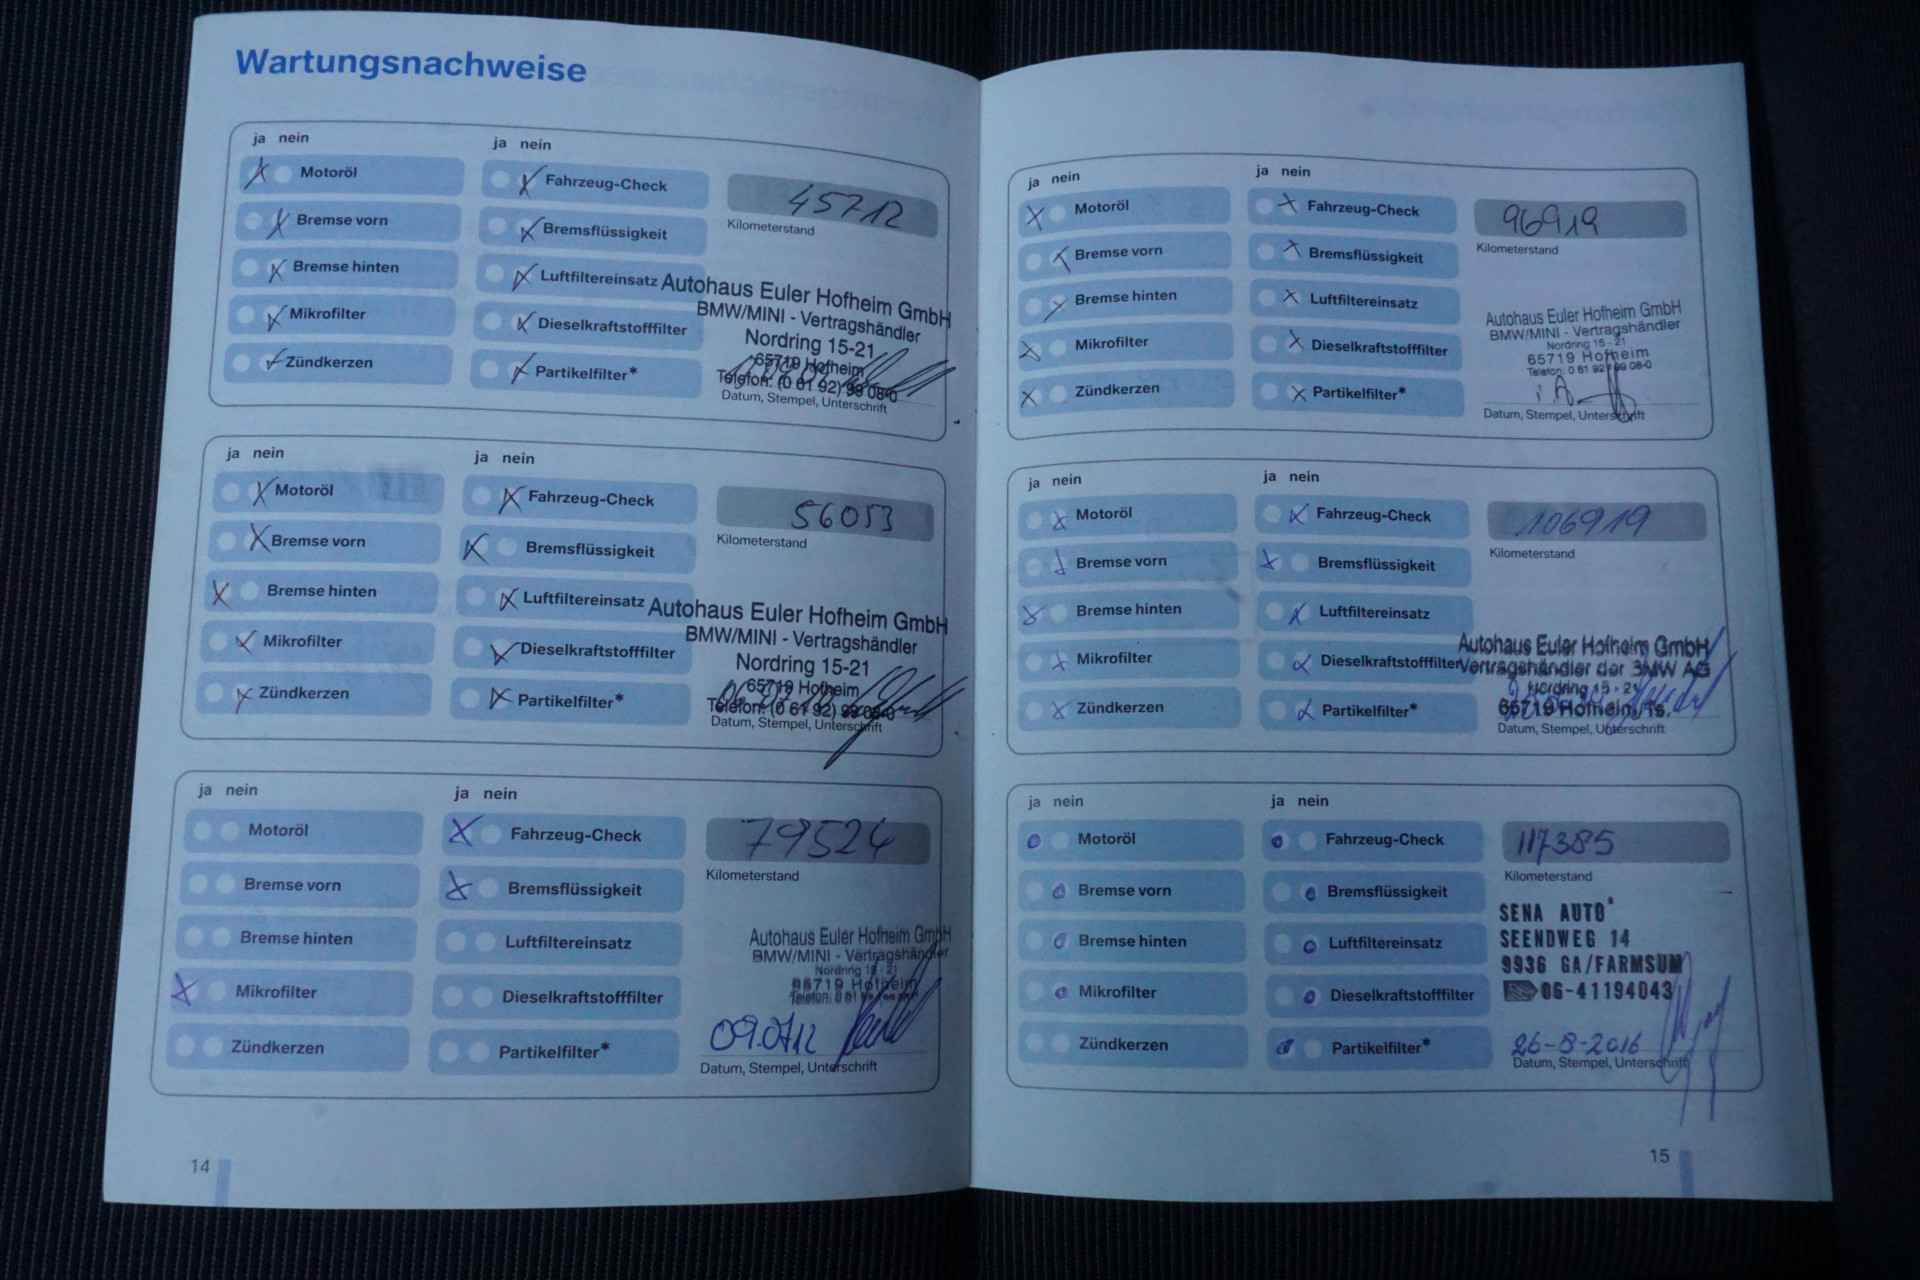 Wartungsnachweise
ja nein
Motoröl
Bremse vorn
Bremse hinten
Mikrofilter
Zündkerzen
ja nein
Fahrzeug-Check
Bremsflüssigkeit
Luftfiltereinsatz
Dieselkraftstofffilter
Partikelfilter*
45712
Kilometerstand
Autohaus Euler Hofheim GmbH
BMW/MINI - Vertragshändler
Nordring 15-21
65719 Hofheim
Telefon: (0 61 92) 99 08-0
Datum, Stempel, Unterschrift
ja nein
Motoröl
Bremse vorn
Bremse hinten
Mikrofilter
Zündkerzen
ja nein
Fahrzeug-Check
Bremsflüssigkeit
Luftfiltereinsatz
Dieselkraftstofffilter
Partikelfilter*
56053
Kilometerstand
Autohaus Euler Hofheim GmbH
BMW/MINI - Vertragshändler
Nordring 15-21
65719 Hofheim
Telefon: (0 61 92) 99 08-0
Datum, Stempel, Unterschrift
ja nein
Motoröl
Bremse vorn
Bremse hinten
Mikrofilter
Zündkerzen
ja nein
Fahrzeug-Check
Bremsflüssigkeit
Luftfiltereinsatz
Dieselkraftstofffilter
Partikelfilter*
79524
Kilometerstand
Autohaus Euler Hofheim GmbH
BMW/MINI - Vertragshändler
Nordring 15 - 21
65719 Hofheim
09.07.12
Datum, Stempel, Unterschrift
14
ja nein
Motoröl
Bremse vorn
Bremse hinten
Mikrofilter
Zündkerzen
ja nein
Fahrzeug-Check
Bremsflüssigkeit
Luftfiltereinsatz
Dieselkraftstofffilter
Partikelfilter*
96919
Kilometerstand
Autohaus Euler Hofheim GmbH
BMW/MINI - Vertragshändler
Nordring 15 - 21
65719 Hofheim
Telefon: 0 61 92 / 99 08-0
Datum, Stempel, Unterschrift
ja nein
Motoröl
Bremse vorn
Bremse hinten
Mikrofilter
Zündkerzen
ja nein
Fahrzeug-Check
Bremsflüssigkeit
Luftfiltereinsatz
Dieselkraftstofffilter
Partikelfilter*
106919
Kilometerstand
Autohaus Euler Hofheim GmbH
Vertragshändler der BMW AG
Nordring 15 - 21
65719 Hofheim/Ts.
Datum, Stempel, Unterschrift
ja nein
Motoröl
Bremse vorn
Bremse hinten
Mikrofilter
Zündkerzen
ja nein
Fahrzeug-Check
Bremsflüssigkeit
Luftfiltereinsatz
Dieselkraftstofffilter
Partikelfilter*
117385
Kilometerstand
SENA AUTO'
SEENDWEG 14
9936 GA/FARMSUM
06-41194043
26-8-2016
Datum, Stempel, Unterschrift
15